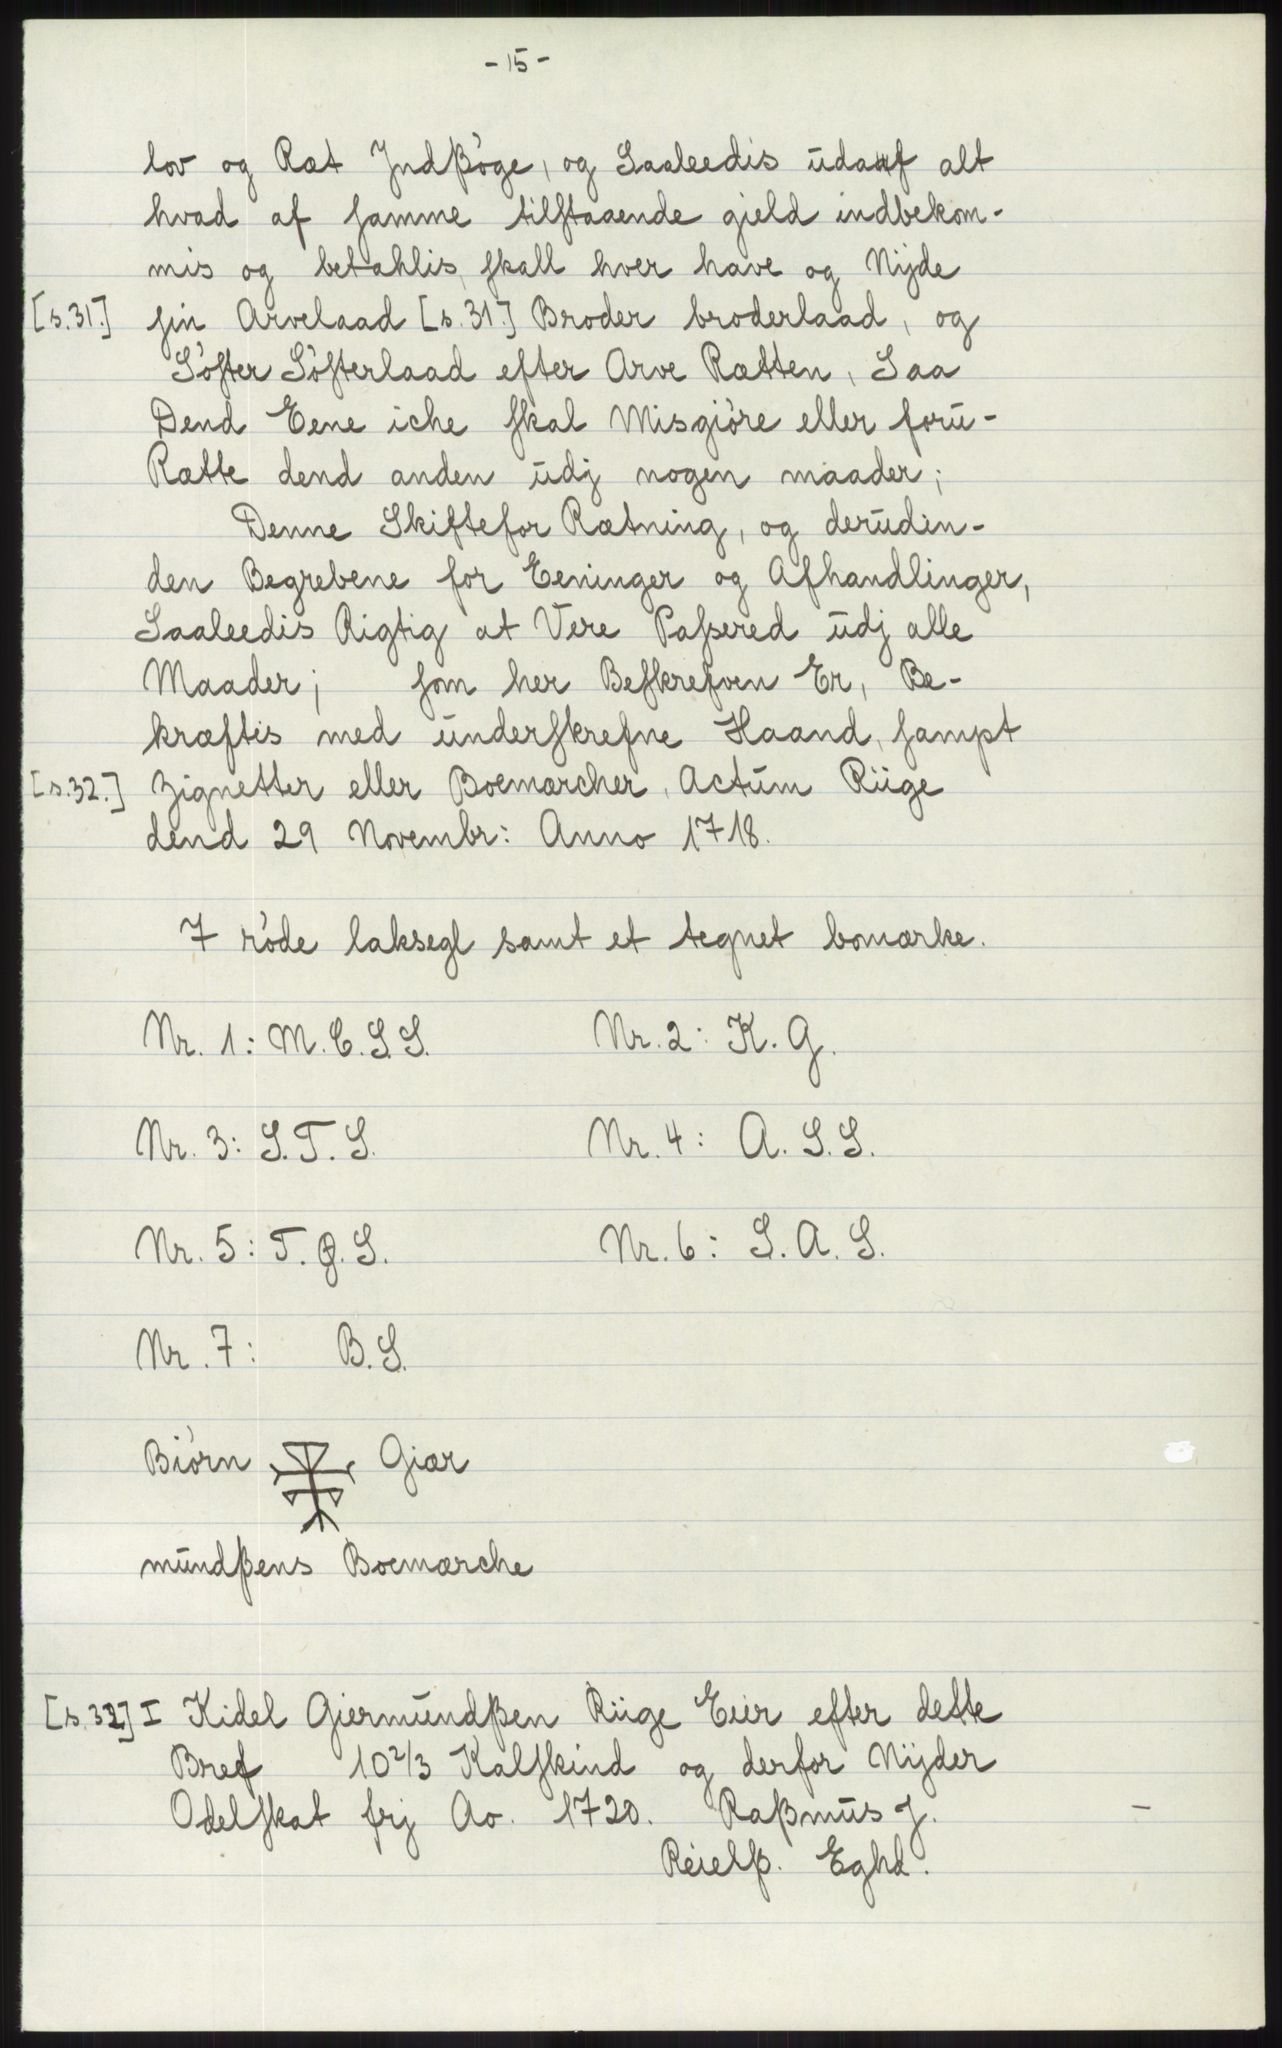 - 15 -
lov og Ræt Jndßöge, og Saaleedis udaf alt
hvad af samme tilstaaende gield indbekom-
mis og betahlis, skall hver have og Nÿde
[s.31.] sin Arvelaad [s.31.] Broder broderlaad, og
Söster Sösterlaad efter Arve Rætten, Saa
Dend Eene iche skal Misgiöre eller foru-
Rætte dend anden udj nogen maader;
Denne Skiftefor Rætning, og derudin-
den Begrebene for Eeninger og Afhandlinger,
Saaleedis Rigtig at Vere Passered udj alle
Maader; som her Beskrefven Er, Be-
kræftis med underskrefne Haand, sampt
[s.32.] Zignetter eller Boemærcher, Actum Riige
dend 29 Novembr: Anno 1718.
7 röde laksegl samt et tegnet bomærke.
Nr. 1: M.C.S.S. Nr. 2: K.G.
Nr. 3: S.T.S. Nr. 4: A.S.S.
Nr. 5: T.O.S. Nr. 6: S.A.S.
Nr. 7: B.S.
Biörn Giær
mundßens Boemærche
[s.32] I Kidel Giermundßen Riige Eier efter dette
Bref 10 2/3 Kalfskind og derfor Nÿder
Odelskat frj Ao. 1720. Raßmus J.
Reielß. Eghd.